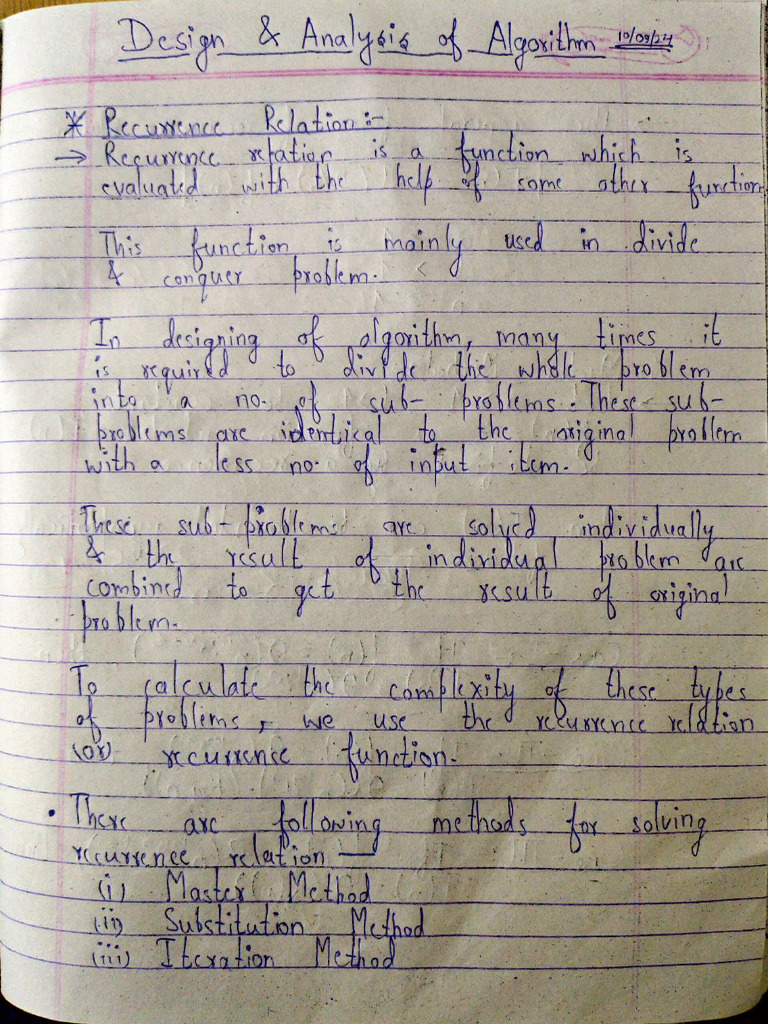 Design & Analysis of Algorithm 10/09/24
* Recurrence Relation :-
→ Recurrence relation is a function which is
evaluated with the help of some other function
This function is mainly used in divide
& conquer problem.
In designing of algorithm, many times it
is required to divide the whole problem
into a no. of sub- problems. These sub-
problems are identical to the original problem
with a less no. of input item.
These sub-problems are solved individually
& the result of individual problem are
combined to get the result of original
problem.
To calculate the complexity of these types
of problems, we use the recurrence relation
(or) recurrence function.
• There are following methods for solving
recurrence relation —
(i) Master Method
(ii) Substitution Method
(iii) Iteration Method